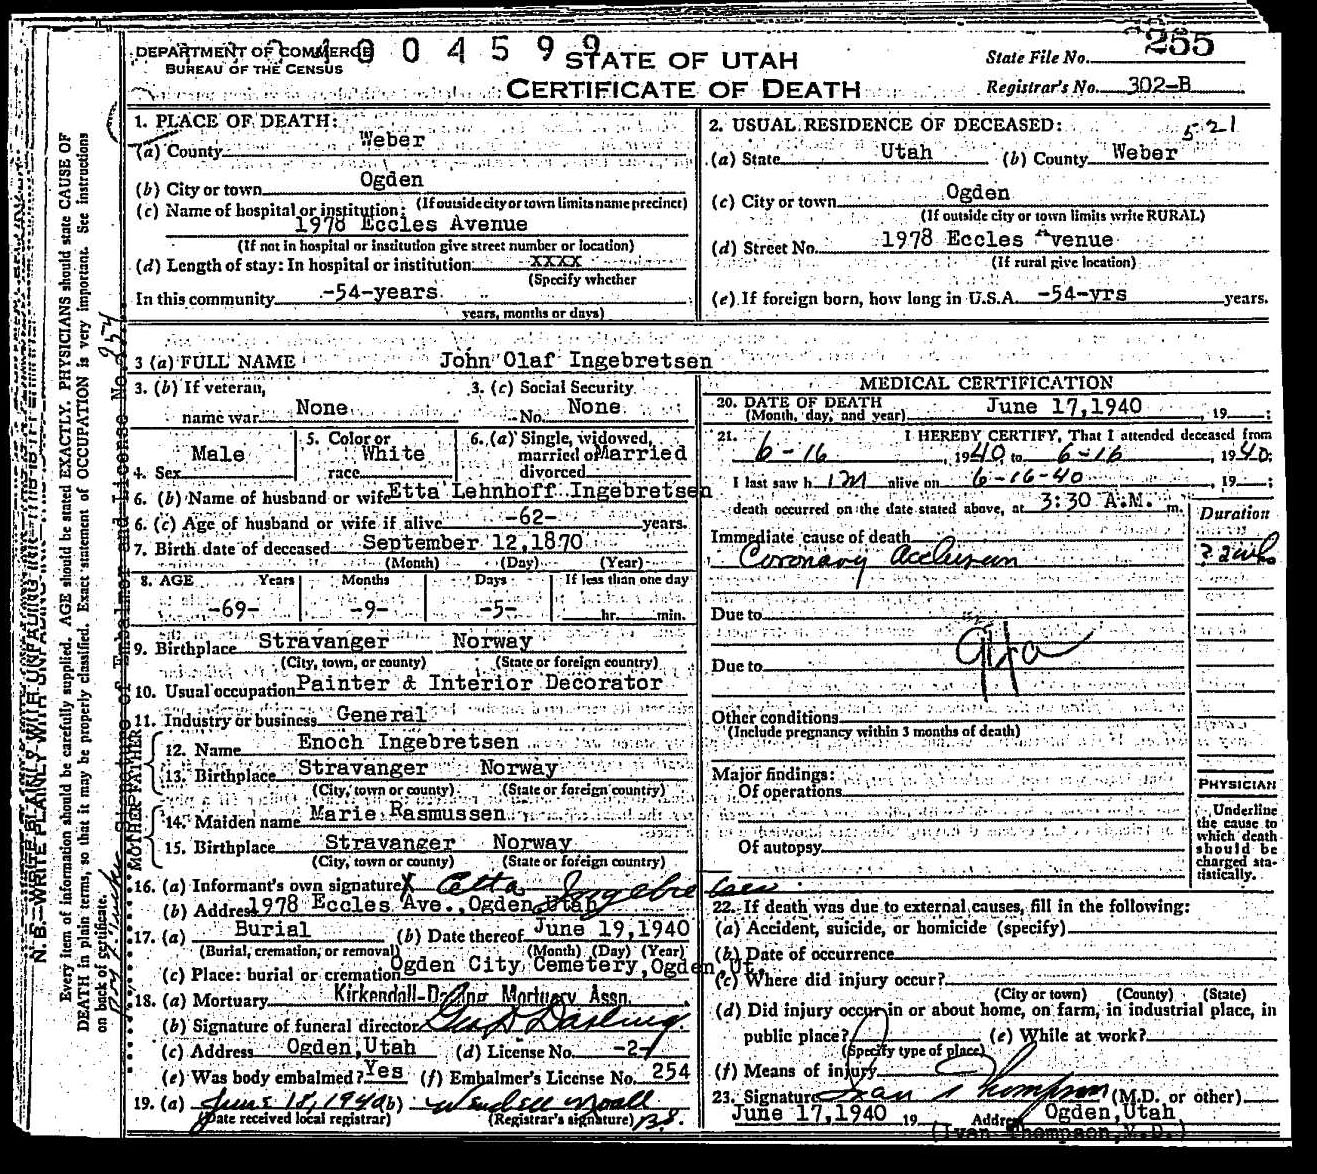 DEPARTMENT OF COMMERCE
BUREAU OF THE CENSUS
4 0 0 4 5 9 9
STATE OF UTAH
CERTIFICATE OF DEATH
State File No. 255
Registrar's No. 302-B
1. PLACE OF DEATH:
(a) County Weber
(b) City or town Ogden
(If outside city or town limits name precinct)
(c) Name of hospital or institution:
1978 Eccles Avenue
(If not in hospital or institution give street number or location)
(d) Length of stay: In hospital or institution xxxx
(Specify whether
In this community -54-years
years, months or days)
2. USUAL RESIDENCE OF DECEASED: 521
(a) State Utah (b) County Weber
(c) City or town Ogden
(If outside city or town limits write RURAL)
(d) Street No. 1978 Eccles Avenue
(If rural give location)
(e) If foreign born, how long in U.S.A. -54-yrs years.
3 (a) FULL NAME John Olaf Ingebretsen
3. (b) If veteran, name war None
3. (c) Social Security No. None
4. Sex Male
5. Color or race White
6. (a) Single, widowed, married or divorced Married
6. (b) Name of husband or wife Etta Lehnhoff Ingebretsen
6. (c) Age of husband or wife if alive -62- years.
7. Birth date of deceased September 12,1870
(Month) (Day) (Year)
8. AGE Years Months Days If less than one day
-69- -9- -5- hr. min.
9. Birthplace Stravanger Norway
(City, town, or county) (State or foreign country)
10. Usual occupation Painter & Interior Decorator
11. Industry or business General
FATHER
12. Name Enoch Ingebretsen
13. Birthplace Stravanger Norway
(City, town or county) (State or foreign country)
MOTHER
14. Maiden name Marie Rasmussen
15. Birthplace Stravanger Norway
(City, town or county) (State or foreign country)
16. (a) Informant's own signature X Etta Ingebretsen
(b) Address 1978 Eccles Ave., Ogden, Utah
17. (a) Burial (b) Date thereof June 19,1940
(Burial, cremation, or removal) (Month) (Day) (Year)
(c) Place: burial or cremation Ogden City Cemetery, Ogden, Ut.
18. (a) Mortuary Kirkendall-Darling Mortuary Assn.
(b) Signature of funeral director Geo D Darling
(c) Address Ogden,Utah (d) License No. -2-
(e) Was body embalmed? Yes (f) Embalmer's License No. 254
19. (a) June 18, 1940 (b) Wendell Noall
(Date received local registrar) (Registrar's signature) B.S.
MEDICAL CERTIFICATION
20. DATE OF DEATH
(Month, day, and year) June 17,1940, 19 ;
21. I HEREBY CERTIFY, That I attended deceased from
6-16, 1940 to 6-16, 1940;
I last saw him alive on 6-16-40, 19 ;
death occurred on the date stated above, at 3:30 A.M. m.
Duration
Immediate cause of death
Coronary Occlusion
Due to
Due to
Other conditions
(Include pregnancy within 3 months of death)
Major findings:
Of operations
Of autopsy
PHYSICIAN
Underline
the cause to
which death
should be
charged sta-
tistically.
22. If death was due to external causes, fill in the following:
(a) Accident, suicide, or homicide (specify)
(b) Date of occurrence
(c) Where did injury occur?
(City or town) (County) (State)
(d) Did injury occur in or about home, on farm, in industrial place, in
public place? (e) While at work?
(Specify type of place)
(f) Means of injury
23. Signature Ivan Thompson (M.D. or other)
June 17,1940 19 Address Ogden,Utah
(Ivan Thompson,M.D.)
N. B.—WRITE PLAINLY WITH UNFADING INK
Every item of information should be carefully supplied. AGE should be stated EXACTLY. PHYSICIANS should state CAUSE OF
DEATH in plain terms, so that it may be properly classified. Exact statement of OCCUPATION is very important. See instructions
on back of certificate.
Signature of Embalmer and License No. 254